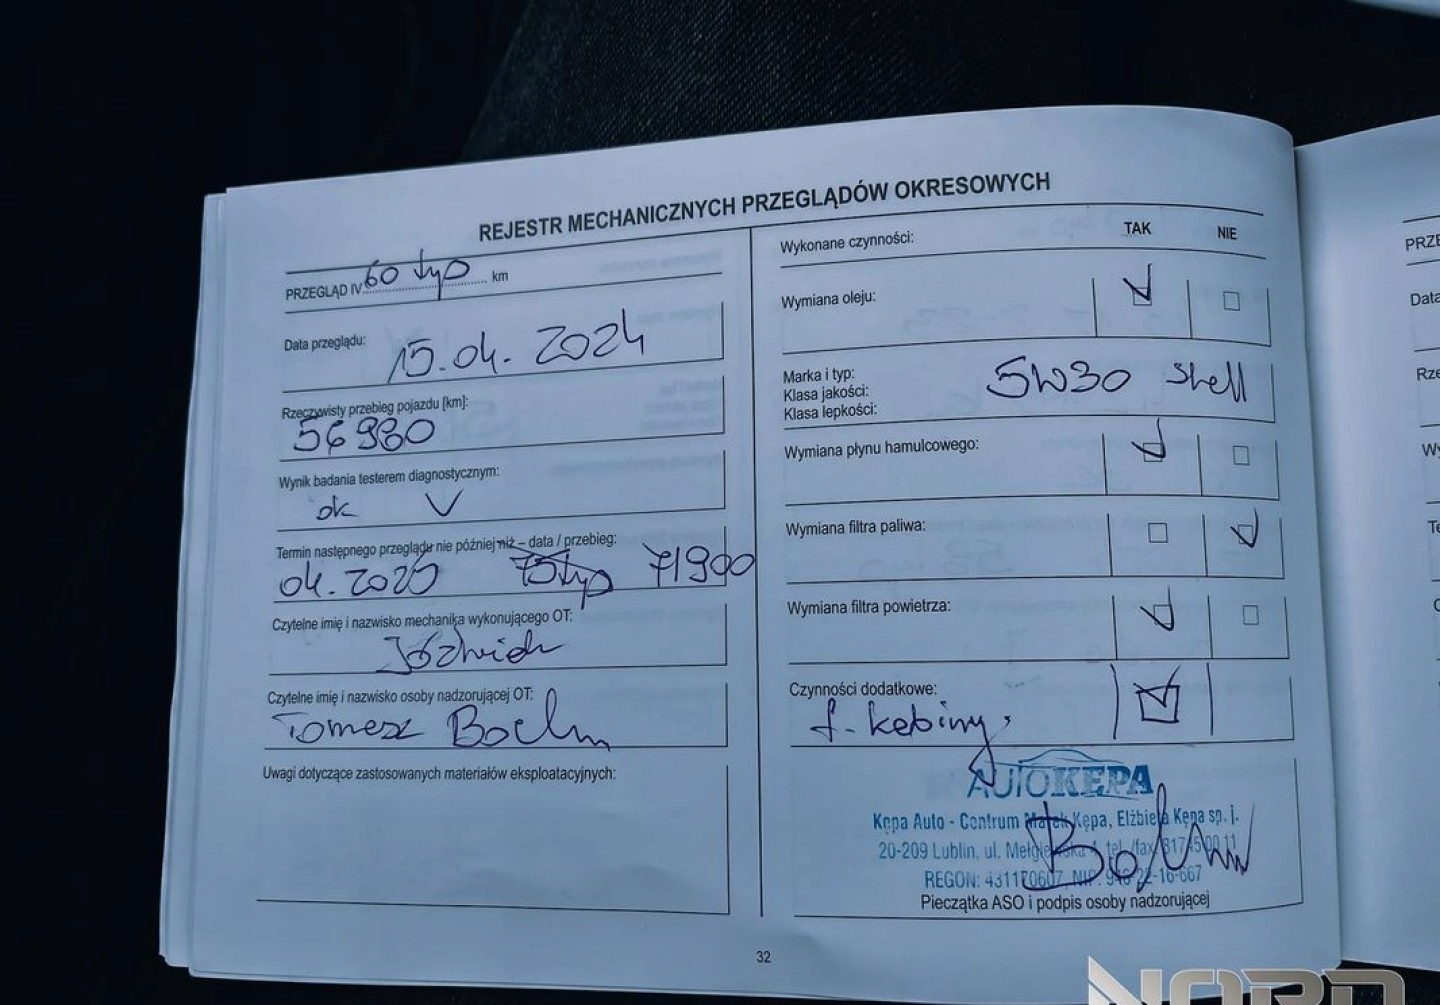 REJESTR MECHANICZNYCH PRZEGLĄDÓW OKRESOWYCH
PRZEGLĄD IV 60 tyś km
Data przeglądu:
15.04.2024
Rzeczywisty przebieg pojazdu [km]:
56980
Wynik badania testerem diagnostycznym:
ok V
Termin następnego przeglądu nie później niż – data / przebieg:
04.2025 75tyś 71900
Czytelne imię i nazwisko mechanika wykonującego OT:
Czytelne imię i nazwisko osoby nadzorującej OT:
Tomasz
Uwagi dotyczące zastosowanych materiałów eksploatacyjnych:
Wykonane czynności: TAK NIE
Wymiana oleju:
Marka i typ:
Klasa jakości:
Klasa lepkości:
5W30 Shell
Wymiana płynu hamulcowego:
Wymiana filtra paliwa:
Wymiana filtra powietrza:
Czynności dodatkowe:
f. kabiny,
AUTOKĘPA
Kępa Auto - Centrum Marek Kępa, Elżbieta Kępa sp. j.
20-209 Lublin, ul. Mełgiewska tel. /fax
REGON: 431170607, NIP: 946-22-16-667
Pieczątka ASO i podpis osoby nadzorującej
32
PRZE
Data
Rze
Wy
Te
NORD